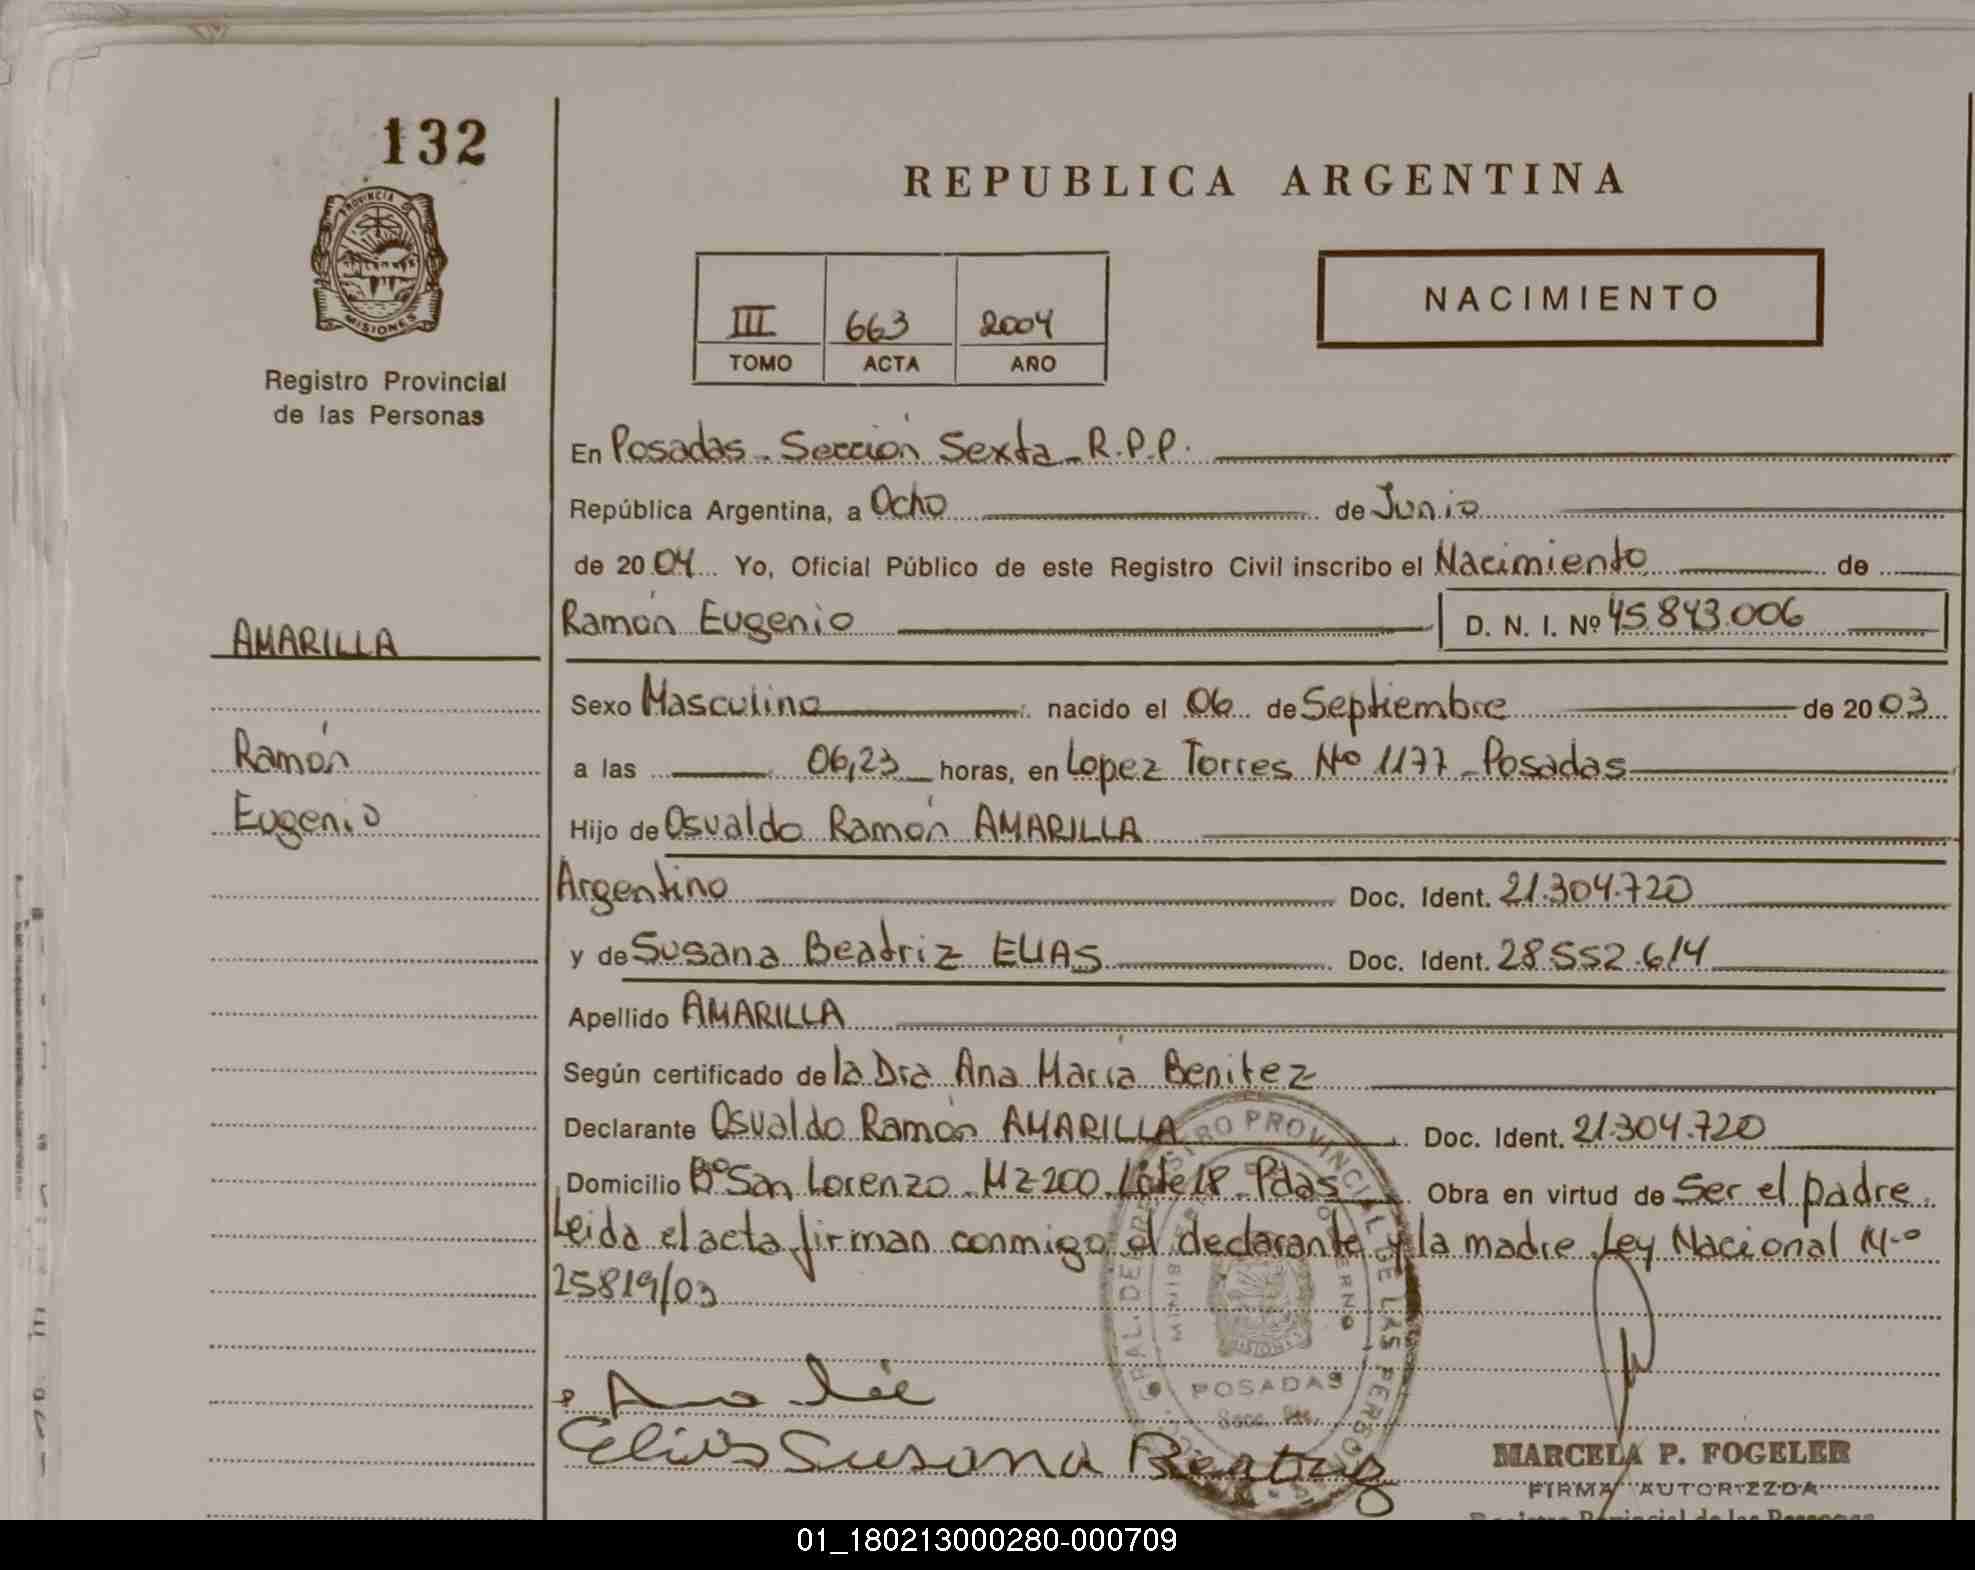 132
PROVINCIA DE
MISIONES
Registro Provincial
de las Personas
REPUBLICA ARGENTINA
III 663 2004
TOMO ACTA AÑO
NACIMIENTO
En Posadas - Sección Sexta - R.P.P.
República Argentina, a Ocho de Junio
de 2004 Yo, Oficial Público de este Registro Civil inscribo el Nacimiento de
AMARILLA
Ramón Eugenio D. N. I. Nº 45.843.006
Sexo Masculino nacido el 06 de Septiembre de 2003
Ramón
a las 06,23 horas, en Lopez Torres Nº 1177 - Posadas
Eugenio
Hijo de Osvaldo Ramón AMARILLA
Argentino Doc. Ident. 21.304.720
y de Susana Beatriz ELIAS Doc. Ident. 28.552.614
Apellido AMARILLA
Según certificado de la Dra Ana María Benitez
Declarante Osvaldo Ramón AMARILLA Doc. Ident. 21.304.720
Domicilio Bº San Lorenzo - Mz 200 - Lote 18 - Pdas Obra en virtud de Ser el padre
Leida el acta firman conmigo el declarante y la madre Ley Nacional Nº
25819/03
POSADAS
Elias Susana Beatriz
MARCELA P. FOGELER
FIRMA AUTORIZADA
Registro Provincial de las Personas
01_180213000280-000709